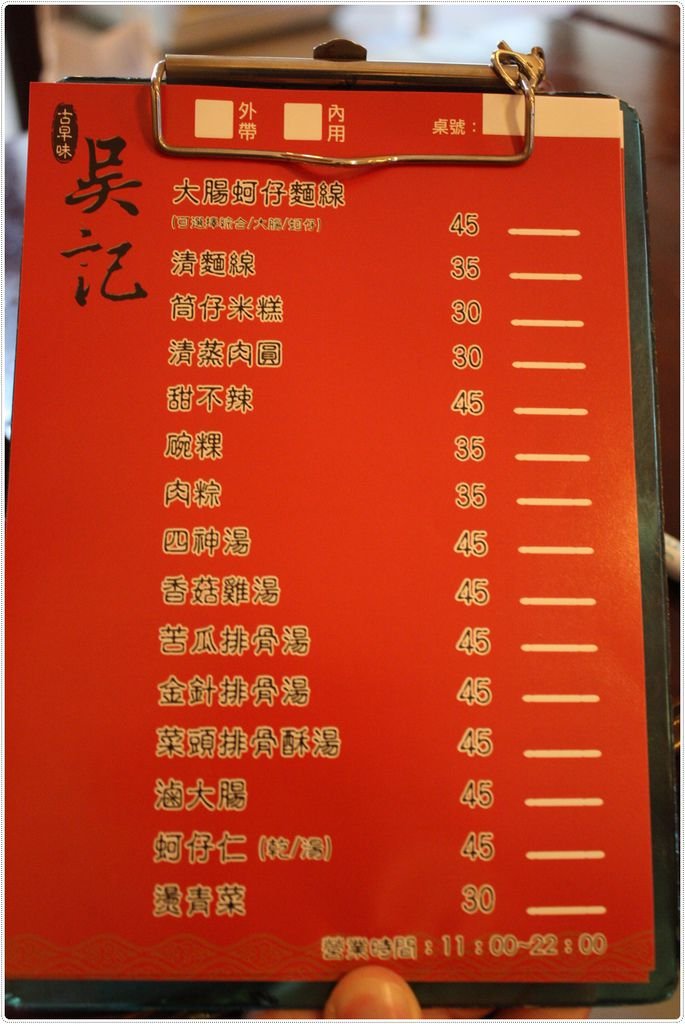 外帶 內用 桌號：
古早味
吳記
大腸蚵仔麵線
(可選擇綜合/大腸/蚵仔) 45
清麵線 35
筒仔米糕 30
清蒸肉圓 30
甜不辣 45
碗粿 35
肉粽 35
四神湯 45
香菇雞湯 45
苦瓜排骨湯 45
金針排骨湯 45
菜頭排骨酥湯 45
滷大腸 45
蚵仔仁 (乾/湯) 45
燙青菜 30
營業時間：11：00~22：00